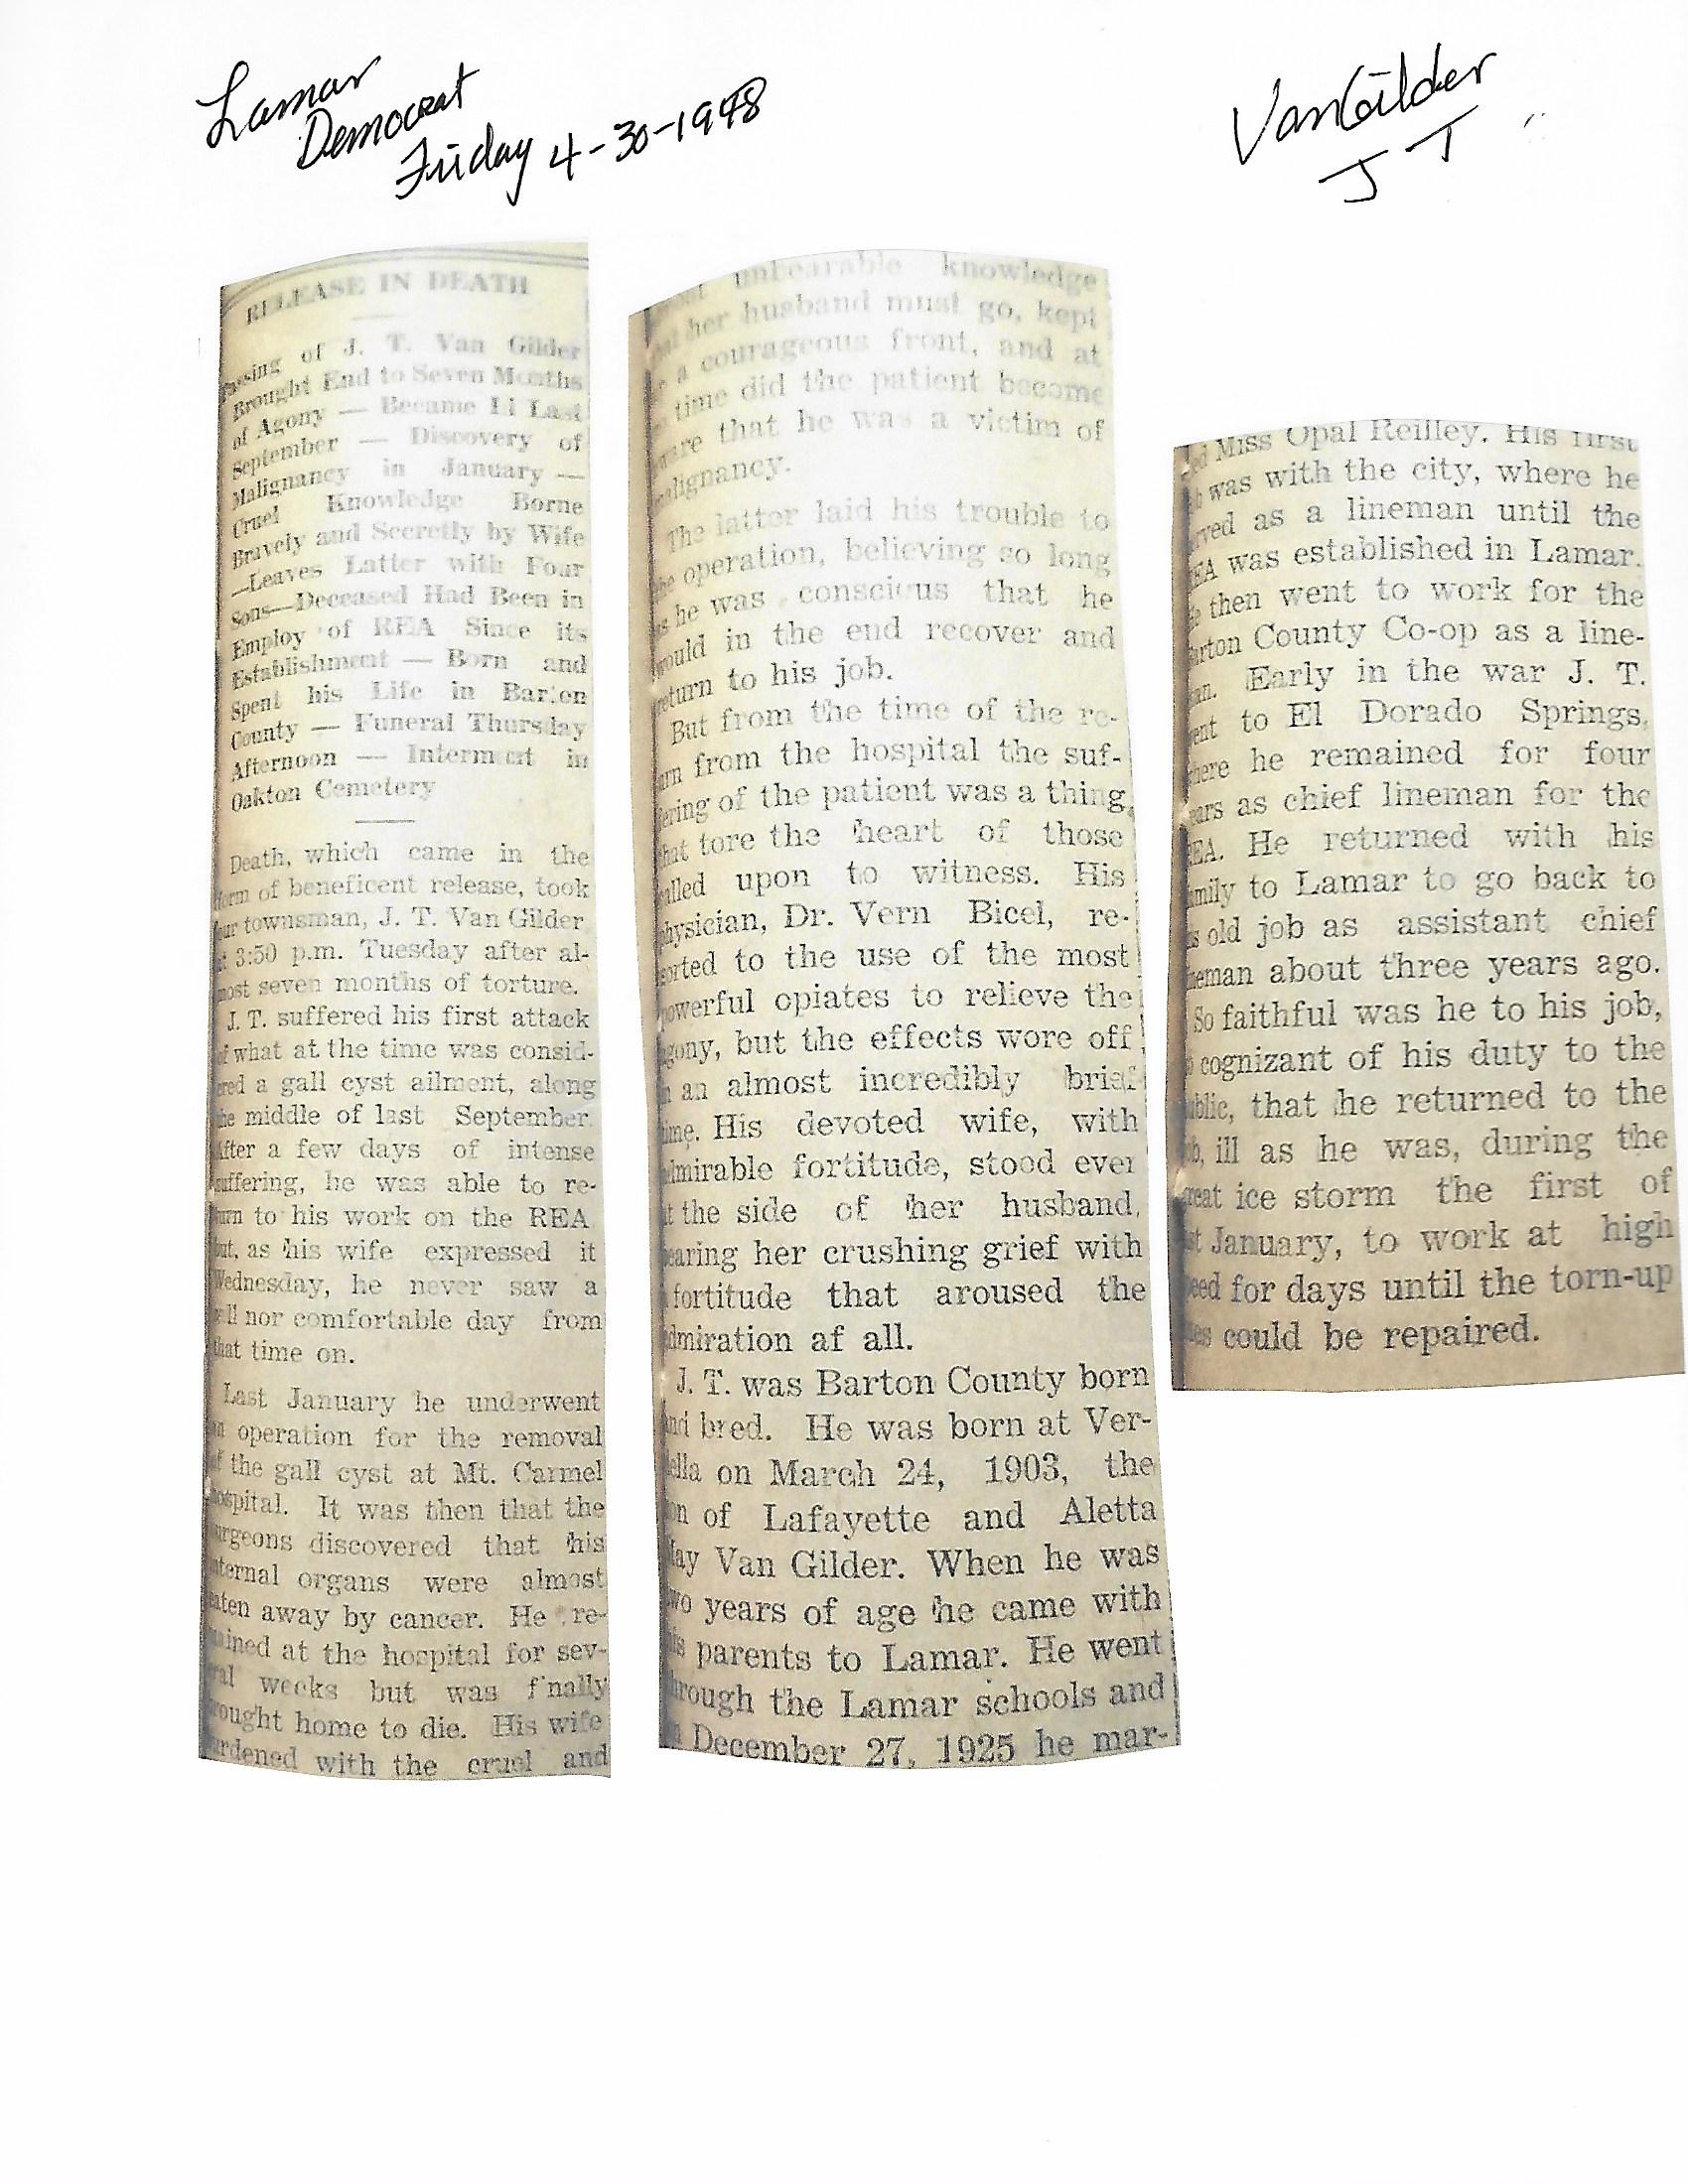 Lamar
Democrat
Friday 4-30-1948
VanGilder
J T
RELEASE IN DEATH
Passing of J. T. Van Gilder
Brought End to Seven Months
of Agony — Became Li Last
September — Discovery of
Malignancy in January —
Cruel Knowledge Borne
Bravely and Secretly by Wife
—Leaves Latter with Four
Sons—Deceased Had Been in
Employ of REA Since its
Establishment — Born and
Spent his Life in Barton
County — Funeral Thursday
Afternoon — Interment in
Oakton Cemetery
Death, which came in the
form of beneficent release, took
our townsman, J. T. Van Gilder
at 3:50 p.m. Tuesday after al-
most seven months of torture.
J. T. suffered his first attack
of what at the time was consid-
ered a gall cyst ailment, along
the middle of last September.
After a few days of intense
suffering, he was able to re-
turn to his work on the REA
but, as his wife expressed it
Wednesday, he never saw a
well nor comfortable day from
that time on.
Last January he underwent
an operation for the removal
of the gall cyst at Mt. Carmel
hospital. It was then that the
surgeons discovered that his
internal organs were almost
eaten away by cancer. He re-
mained at the hospital for sev-
eral weeks but was f'nally
brought home to die. His wife
burdened with the cruel and
most unbearable knowledge
that her husband must go, kept
a courageous front, and at
time did the patient become
aware that he was a victim of
malignancy.
The latter laid his trouble to
the operation, believing so long
as he was conscious that he
would in the end recover and
return to his job.
But from the time of the re-
turn from the hospital the suf-
fering of the patient was a thing
that tore the heart of those
called upon to witness. His
physician, Dr. Vern Bicel, re-
sorted to the use of the most
powerful opiates to relieve the
agony, but the effects wore off
in an almost incredibly brief
time. His devoted wife, with
admirable fortitude, stood ever
at the side of her husband,
bearing her crushing grief with
a fortitude that aroused the
admiration af all.
J. T. was Barton County born
and bred. He was born at Ver-
della on March 24, 1903, the
son of Lafayette and Aletta
May Van Gilder. When he was
two years of age he came with
his parents to Lamar. He went
through the Lamar schools and
on December 27, 1925 he mar-
ried Miss Opal Reilley. His first
job was with the city, where he
served as a lineman until the
REA was established in Lamar.
He then went to work for the
Barton County Co-op as a line-
man. Early in the war J. T.
went to El Dorado Springs,
where he remained for four
years as chief lineman for the
REA. He returned with his
family to Lamar to go back to
his old job as assistant chief
lineman about three years ago.
So faithful was he to his job,
so cognizant of his duty to the
public, that he returned to the
job, ill as he was, during the
great ice storm the first of
last January, to work at high
speed for days until the torn-up
lines could be repaired.